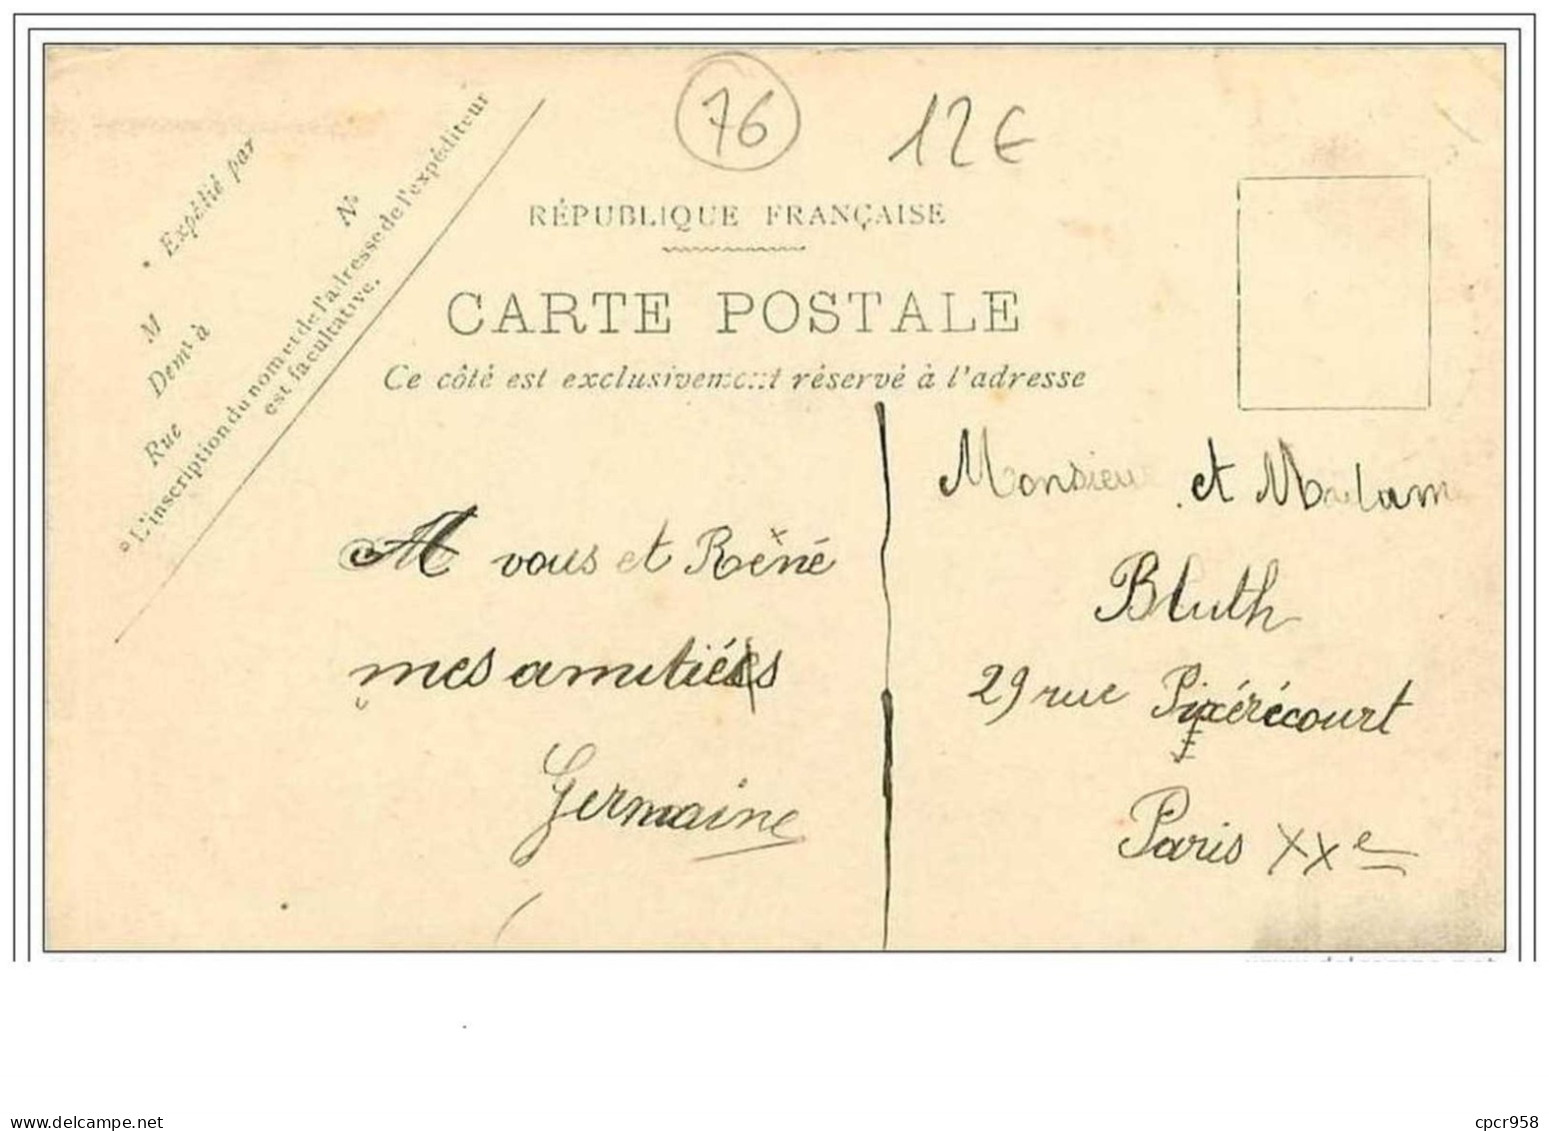 76
12€
* Expédié par
M
Demt à
Rue
No
* L'inscription du nom et de l'adresse de l'expéditeur
est facultative.
RÉPUBLIQUE FRANÇAISE
CARTE POSTALE
Ce côté est exclusivement réservé à l'adresse
A vous et René
mes amitiés
Germaine
Monsieur et Madam
Bluth
29 rue Pixérécourt
Paris XXe
delcampe.net
cpcr958